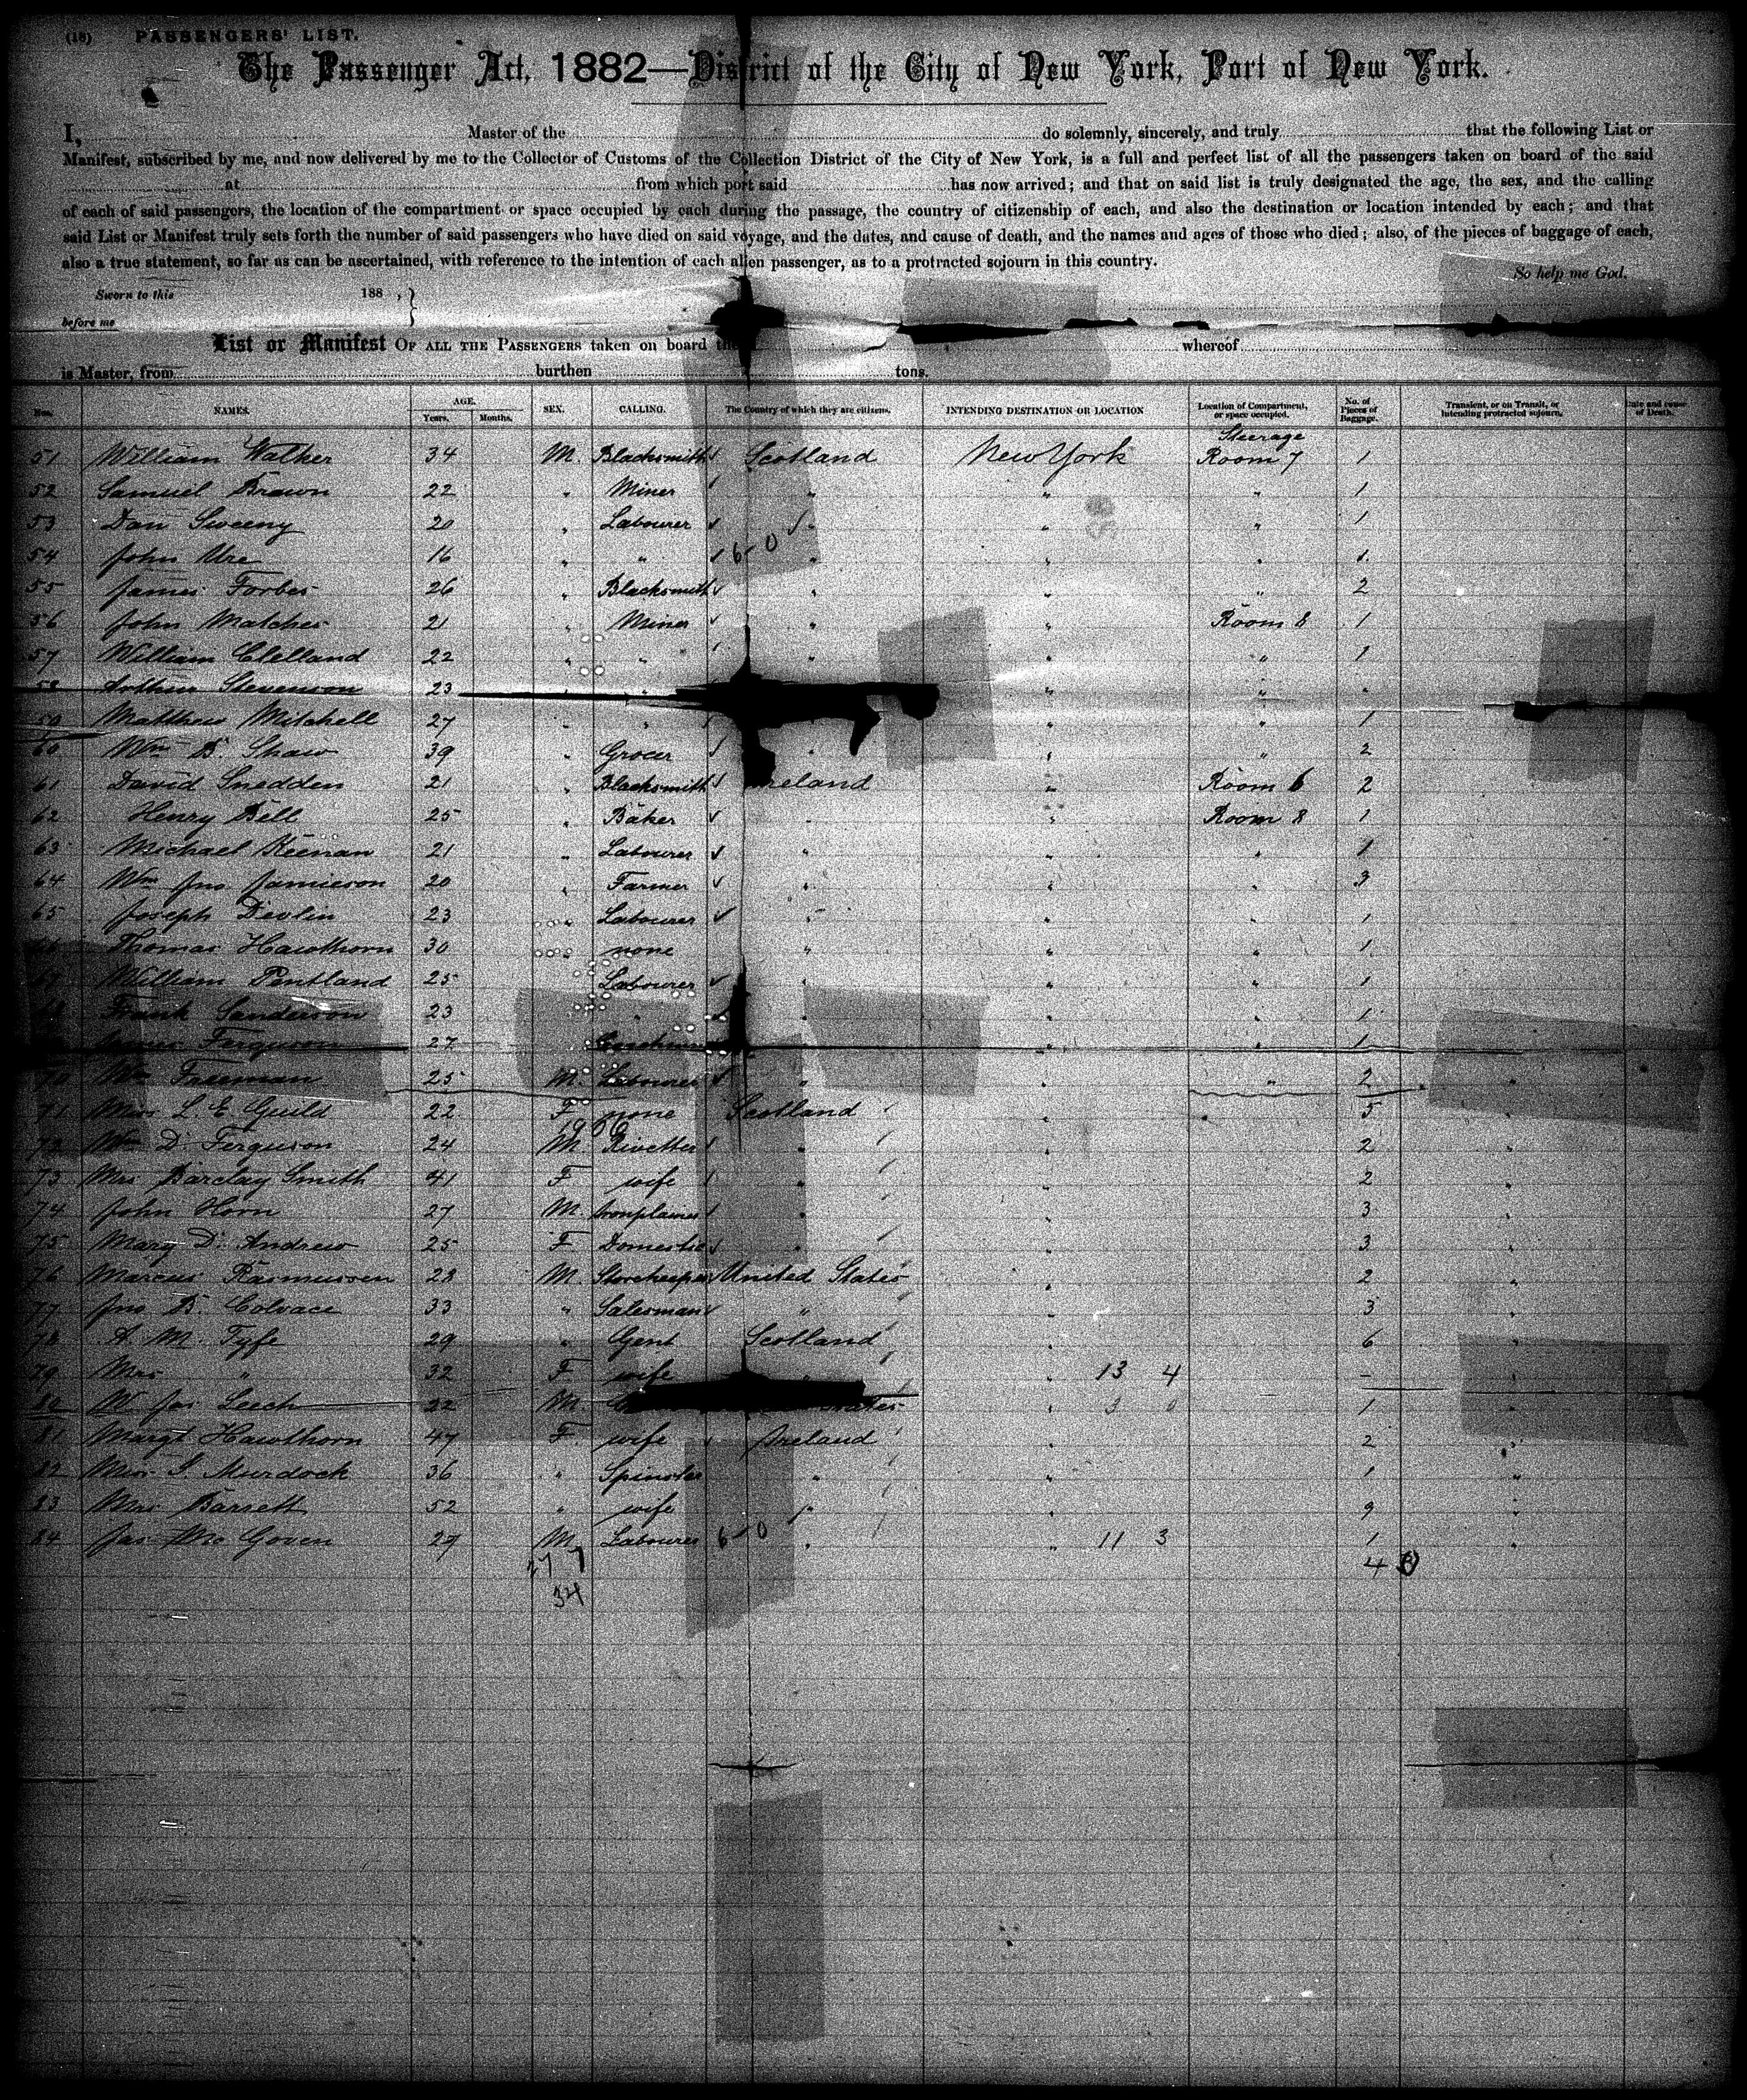 (18) PASSENGERS' LIST.
The Passenger Act, 1882—District of the City of New York, Port of New York.
I, Master of the do solemnly, sincerely, and truly that the following List or
Manifest, subscribed by me, and now delivered by me to the Collector of Customs of the Collection District of the City of New York, is a full and perfect list of all the passengers taken on board of the said
at from which port said has now arrived; and that on said list is truly designated the age, the sex, and the calling
of each of said passengers, the location of the compartment or space occupied by each during the passage, the country of citizenship of each, and also the destination or location intended by each; and that
said List or Manifest truly sets forth the number of said passengers who have died on said voyage, and the dates, and cause of death, and the names and ages of those who died; also, of the pieces of baggage of each,
also a true statement, so far as can be ascertained, with reference to the intention of each alien passenger, as to a protracted sojourn in this country.
So help me God.
Sworn to this 188 ,
before me
List or Manifest OF ALL THE PASSENGERS taken on board the whereof
is Master, from burthen tons.
Nos. NAMES. AGE. Years. Months. SEX. CALLING. The Country of which they are citizens. INTENDING DESTINATION OR LOCATION Location of Compartment, or space occupied. No. of Pieces of Baggage. Transient, or on Transit, or intending protracted sojourn. Date and cause of Death.
51 William Walker 34 M. Blacksmith Scotland New York Steerage Room 7 1
52 Samuel Brown 22 " Miner " " " 1
53 Dan Sweeny 20 " Labourer " " " 1
54 John Ure 16 " " 6-0 " " " 1
55 James Forbes 26 " Blacksmith " " " 2
56 John Matches 21 " Miner " " Room 8 1
57 William Clelland 22 " " " " " 1
58 Arthur Stevenson 23 " " " " "
59 Matthew Mitchell 27 " " " " 1
60 Wm B. Shaw 39 " Grocer " " " 2
61 David Snedden 21 " Blacksmith Ireland " Room 6 2
62 Henry Bell 25 " Baker " " Room 8 1
63 Michael Keenan 21 " Labourer " " " 1
64 Wm Jno Jamieson 20 " Farmer " " " 3
65 Joseph Devlin 23 " Labourer " " " 1
66 Thomas Hawthorn 30 " none " " " 1
67 William Pentland 25 Labourer " " " 1
68 Frank Sanderson 23 " " " 1
Ferguson 27 " " 1
70 Wm Freeman 25 M. Labourer " " " 2 "
71 Miss L E Guild 22 F none Scotland " 5
72 Wm D. Ferguson 24 M. Rivetter " " 2 "
73 Mrs Barclay Smith 41 F wife " " 2 "
74 John Horn 27 M Ironplaner " 3 "
75 Mary D. Andrew 25 F Domestic " " 3 "
76 Marcus Rasmussen 28 M. Storekeeper United States " 2 "
77 Jno B. Colvace 33 " Salesman " " 3 "
78 A. M. Fyfe 29 " Gent Scotland " 6 "
79 Mrs " 32 F wife " " 13 4 - "
80 W Jas Leech 22 M. States " 3 0 1 "
81 Margt Hawthorn 47 F wife Ireland " 2 "
82 Miss I. Murdock 36 " Spinster " " 1 "
83 Mrs Barrett 52 " wife " " 9 "
84 Jas Mc Goven 27 M Labourer 6-0 " " 11 3 1 "
27 7
34